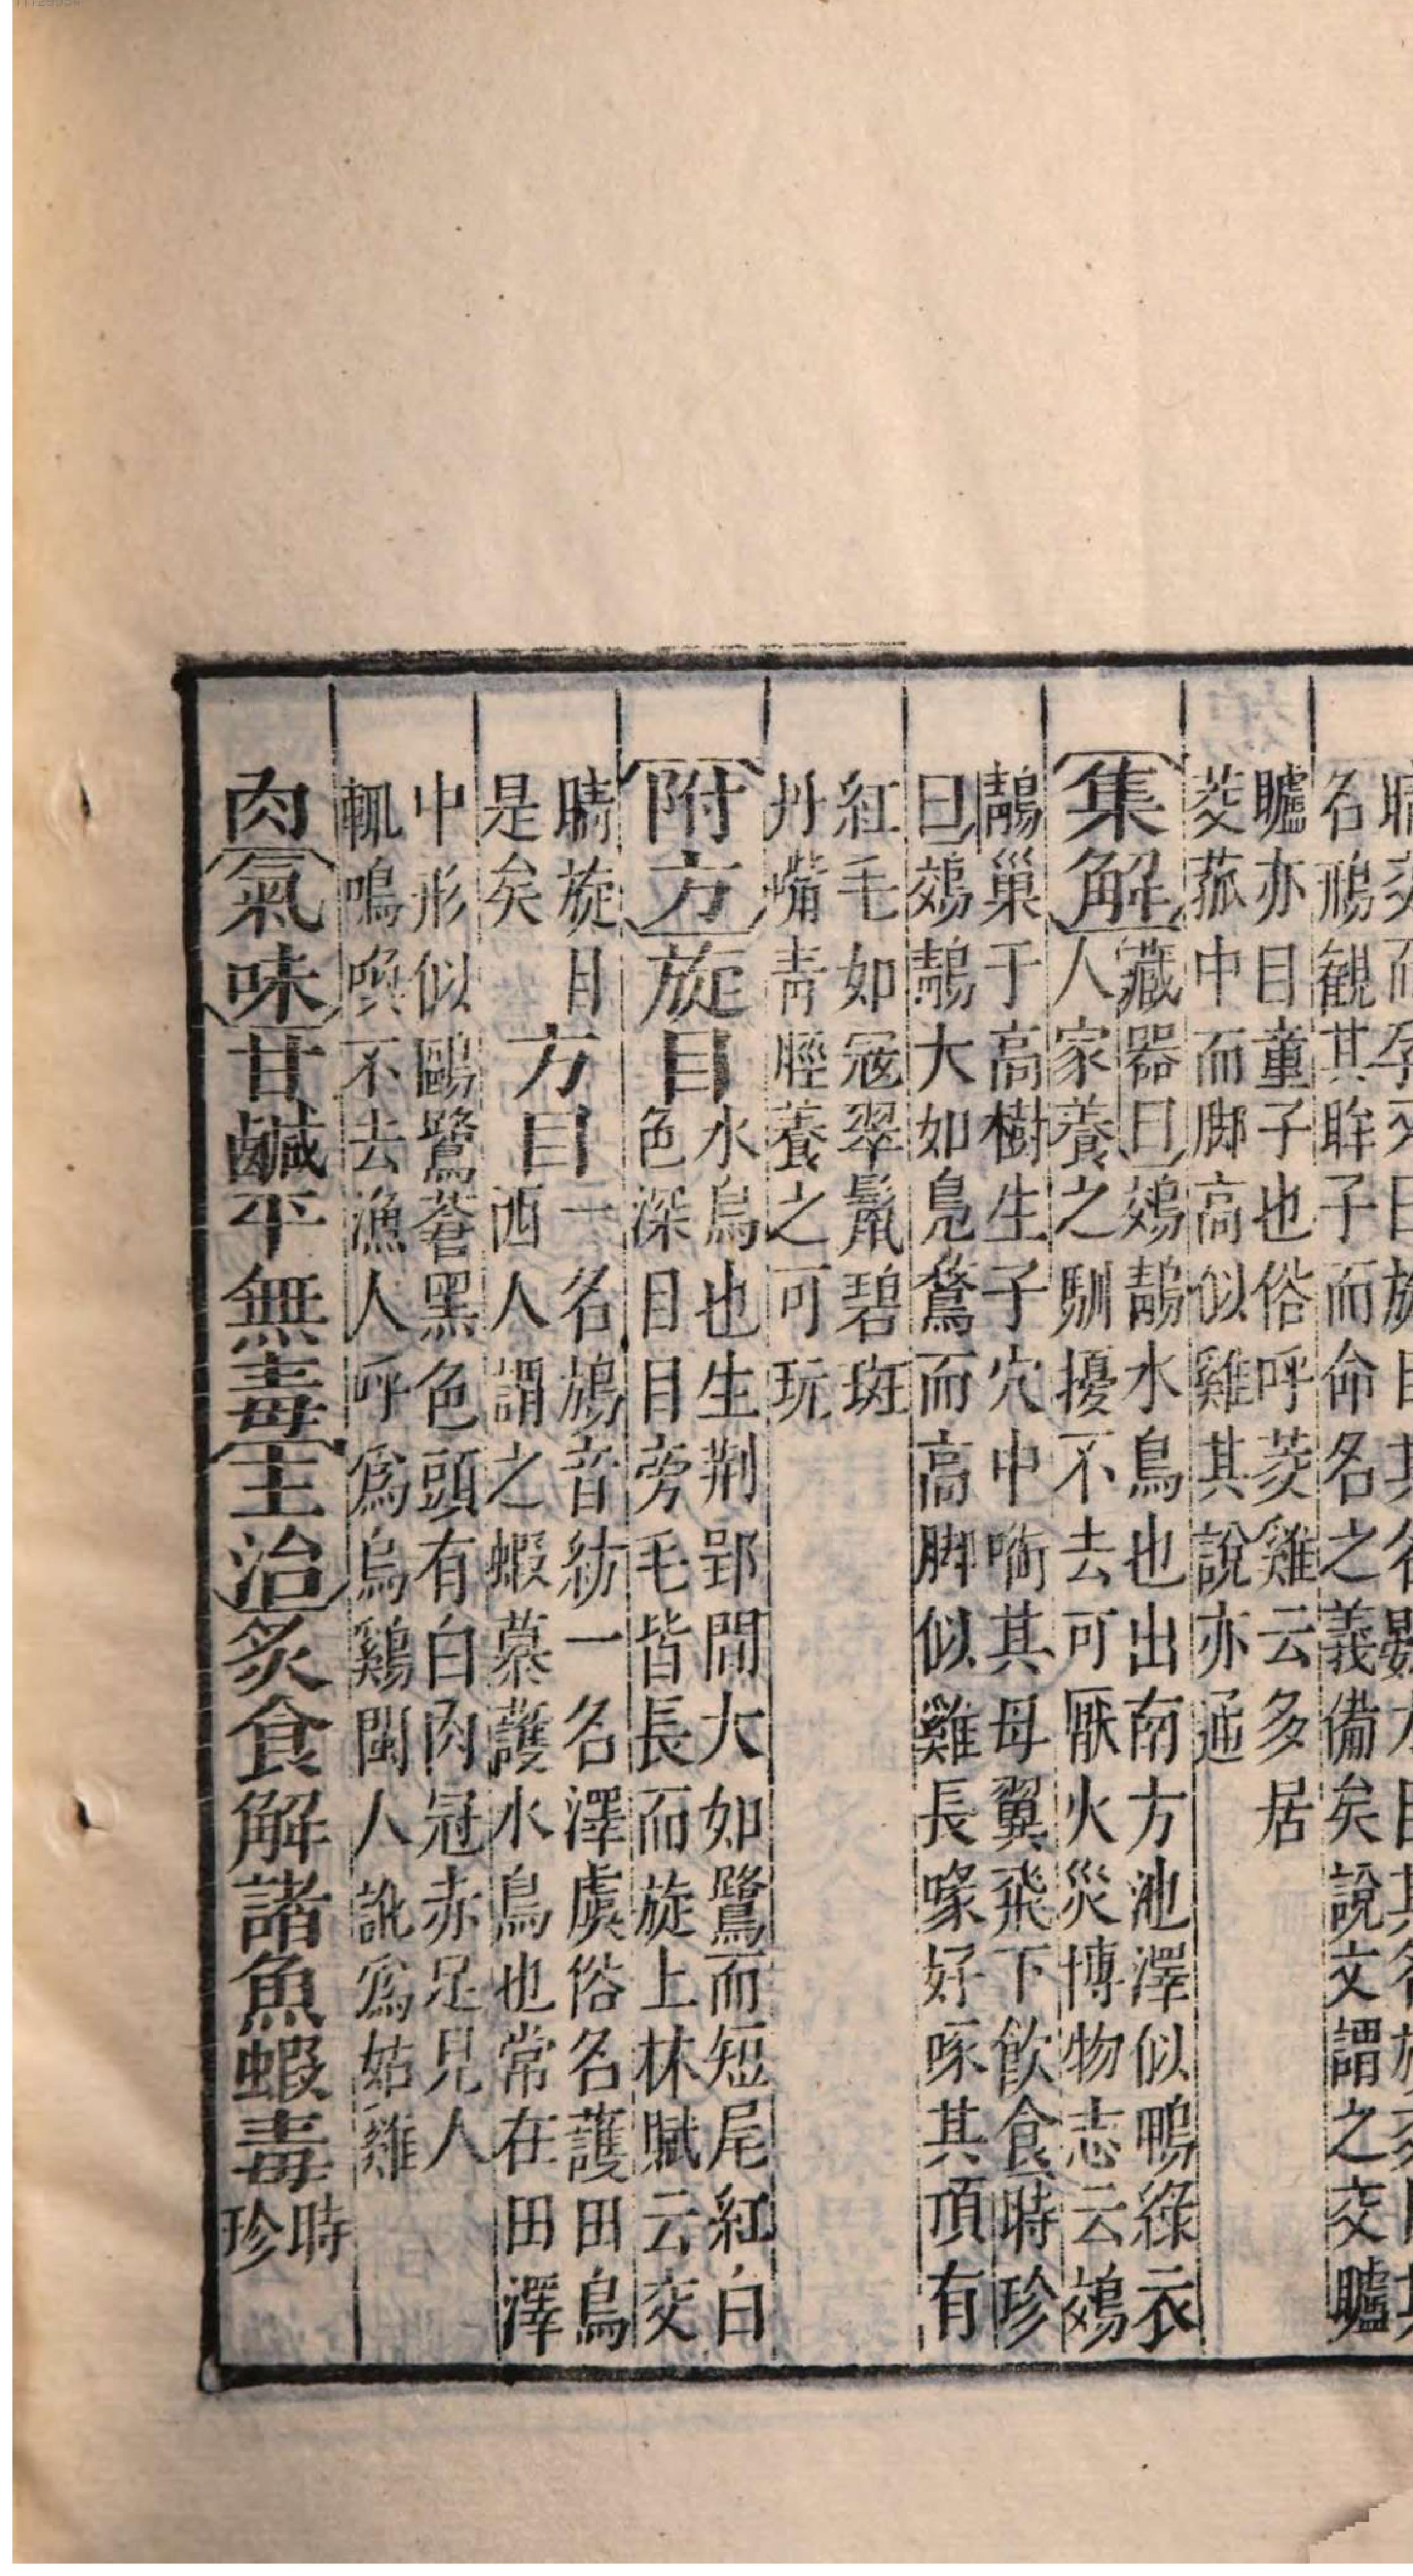 名鳽觀其眸子而命名之義備矣說文謂之交矑
矑亦目童子也俗呼茭雞云多居
茭菰中而脚高似雞其說亦通
集解
藏器曰鵁鶄水鳥也出南方池澤似鴨綠衣
人家養之馴擾不去可厭火災博物志云鵁
鶄巢于高樹生子穴中啣其母翼飛下飲食時珍
曰鵁鶄大如鳧鶩而高脚似雞長喙好啄其頂有
紅毛如冠翠鬛碧斑
丹嘴青脛養之可玩
附方旋目
水鳥也生荆郢間大如鷺而短尾紅白
色深目目旁毛皆長而旋上林賦云交
睛旋目
是矣
方目
一名鴋音紡一名澤虞俗名護田鳥
西人謂之蝦蟇護水鳥也常在田澤
中形似鷗鷺蒼黑色頭有白肉冠赤足見人
輒鳴喚不去漁人呼為烏鷄閩人訛為姑雞
肉氣味甘鹹平無毒主治炙食解諸魚蝦毒時珍